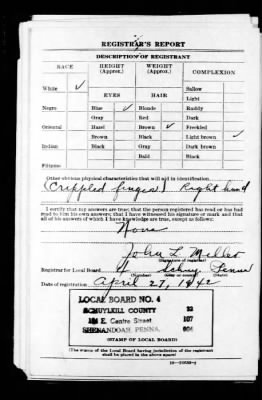 REGISTRAR'S REPORT
DESCRIPTION OF REGISTRANT
RACE HEIGHT (Approx.) WEIGHT (Approx.) COMPLEXION
White ✓ Sallow
EYES HAIR Light
Negro Blue ✓ Blonde Ruddy
Gray Red Dark
Oriental Hazel Brown ✓ Freckled
Brown Black Light brown ✓
Indian Black Gray Dark brown
Bald Black
Filipino
Other obvious physical characteristics that will aid in identification
(Crippled finger) Right hand
I certify that my answers are true; that the person registered has read or has had
read to him his own answers; that I have witnessed his signature or mark and that
all of his answers of which I have knowledge are true, except as follows:
None
John L. Miller
(Signature of registrar)
Registrar for Local Board 4 Schuy. Penna
(Number) (City or county) (State)
Date of registration April 27, 1942
LOCAL BOARD NO. 4
SCHUYLKILL COUNTY 22
E. Centre Street 107
SHENANDOAH, PENNA. 004
(STAMP OF LOCAL BOARD)
(The stamp of the Local Board having jurisdiction of the registrant
shall be placed in the above space)